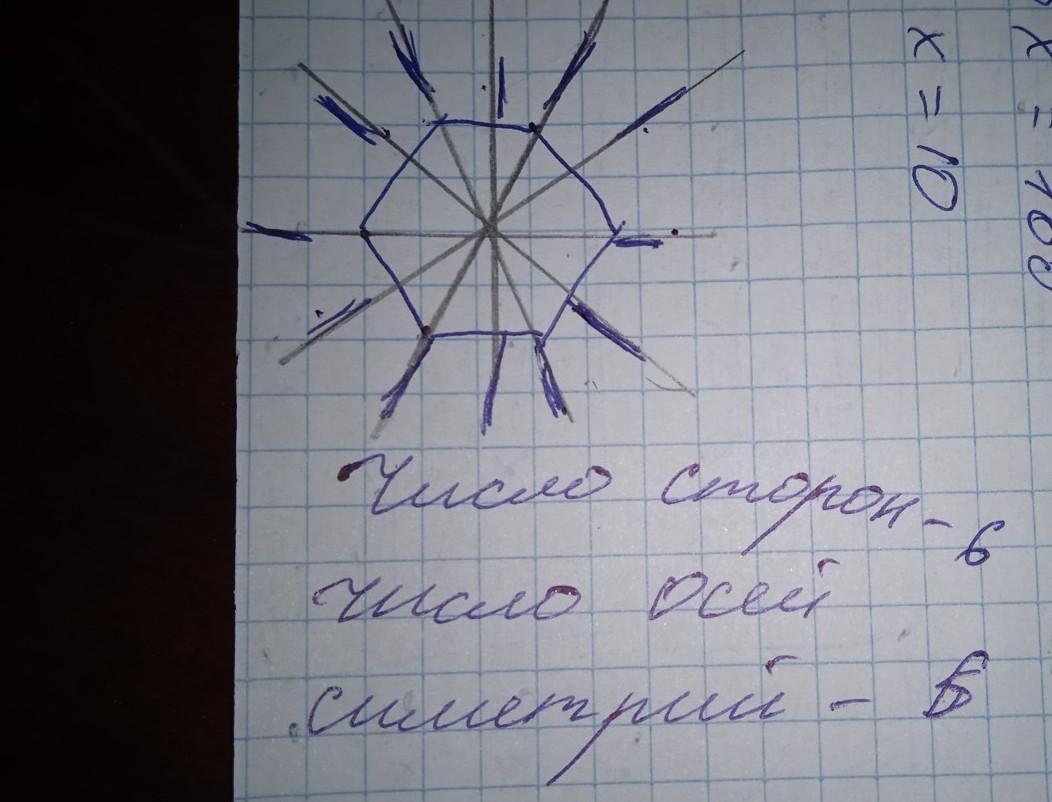 x = 10
x = 100
Число сторон - 6
число осей
симетрий - 6